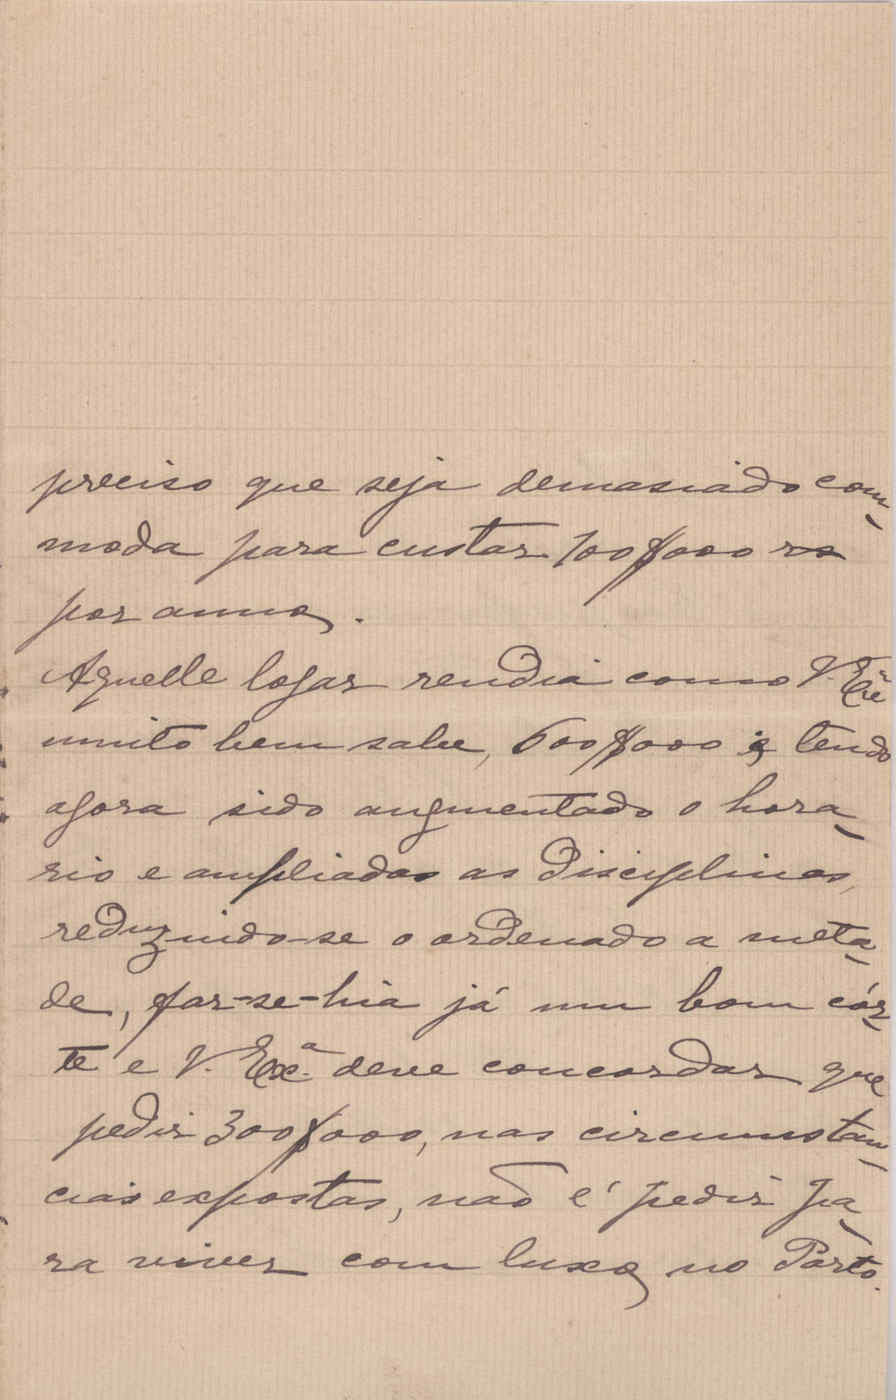 preciso que seja demasiado com-
moda para custar 100$000 rs
por anno.
Aquelle logar rendia como V. Exª
muito bem sabe, 600$000 e tendo
agora sido augmentado o hora-
rio e ampliadas as disciplinas,
reduzindo-se o ordenado a meta-
de, far-se-hia já um bom cór-
te e V. Ex.ª deve concordar que
pedir 300$000, nas circumstan-
cias expostas, não é pedir pa-
ra viver com luxo, no Porto.